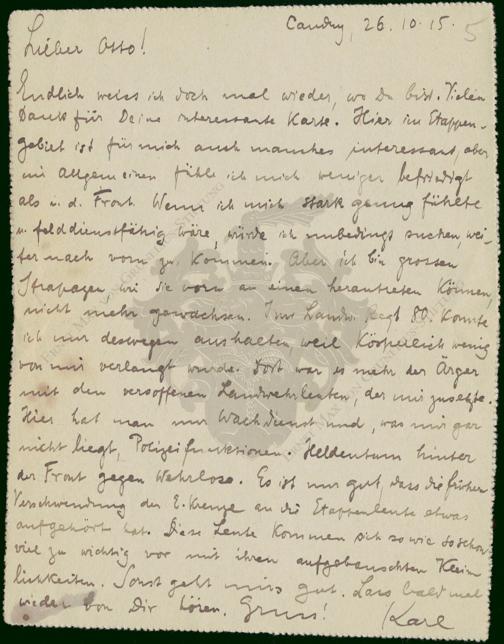 Caudry, 26.10.15.
5
Lieber Otto!
Endlich weiss ich doch mal wieder, wo Du bist. Vielen
Dank für Deine interessante Karte. Hier im Etappen-
gebiet ist für mich auch manches interessant, aber
im Allgemeinen fühle ich mich weniger befriedigt
als a. d. Front. Wenn ich mich stark genug fühlte
u. felddienstfähig wäre, würde ich unbedingt suchen, wei-
ter nach vorn zu kommen. Aber ich bin grossen
Strapazen, wie sie vorn an einen herantreten können,
nicht mehr gewachsen. Im Landw. Regt 80. konnte
ich nur deswegen aushalten, weil körperlich wenig
von mir verlangt wurde. Dort war es mehr der Ärger
mit den versoffenen Landwehrleuten, der mir zusetzte.
Hier hat man nur Wachdienst und, was mir gar
nicht liegt, Polizeifunktionen. Heldentum hinter
der Front gegen Wehrlose. Es ist nur gut, dass die frühere
Verschwendung der E. Kreuze an die Etappenleute etwas
aufgehört hat. Diese Leute kommen sich so wie so schon
viel zu wichtig vor mit ihren aufgebauschten Klein
lichkeiten. Sonst geht mirs gut. Lass bald mal
wieder von Dir hören. Gruss!
Karl